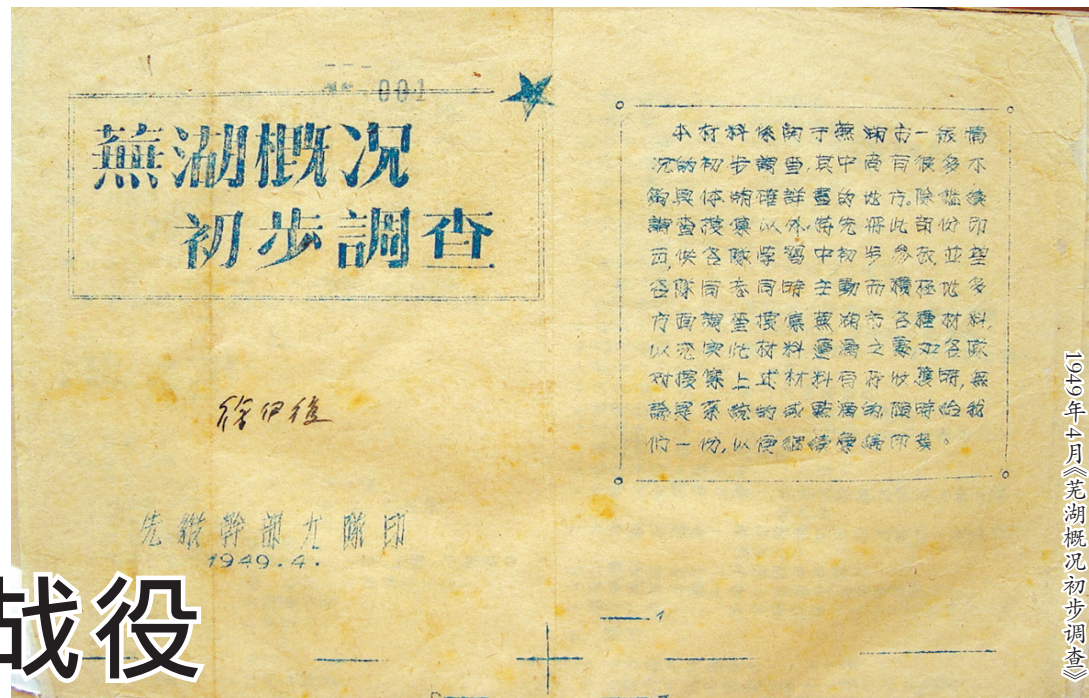 001
蕪湖概況
初步調查
徐伊復
先縱幹部大隊印
1949.4.
本材料係関于蕪湖市一般情
况的初步調查,其中尚有很多不
夠具体明確詳盡的地方。除繼續
調查搜集以外,特先将此部份印
出,供各隊学習中初步參攷,並望
各隊同志同時主動而積極地多
方面調查搜集蕪湖市各種材料,
以充実此材料遺漏之處。如各隊
对搜集上述材料有所收獲時,無
論是系統的或點滴的随時给我
们一份,以便繼續彙編印發。
1
战役
1949年4月《芜湖概况初步调查》